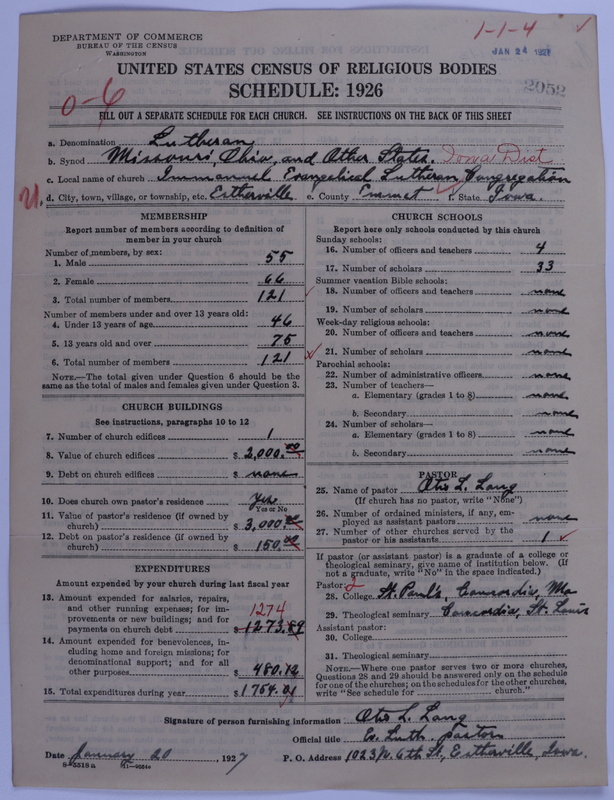 DEPARTMENT OF COMMERCE
BUREAU OF THE CENSUS
WASHINGTON
1-1-4
JAN 24 1927
UNITED STATES CENSUS OF RELIGIOUS BODIES
SCHEDULE: 1926
2052
0-6
FILL OUT A SEPARATE SCHEDULE FOR EACH CHURCH. SEE INSTRUCTIONS ON THE BACK OF THIS SHEET
a. Denomination Lutheran
b. Synod Missouri, Ohio, and Other States. Iowa Dist
c. Local name of church Immanuel Evangelical Lutheran Congregation
d. City, town, village, or township, etc. Estherville e. County Emmet f. State Iowa.
MEMBERSHIP
Report number of members according to definition of
member in your church
Number of members, by sex:
1. Male 55
2. Female 66
3. Total number of members 121
Number of members under and over 13 years old:
4. Under 13 years of age 46
5. 13 years old and over 75
6. Total number of members 121
NOTE.—The total given under Question 6 should be
same as the total of males and females given under Question 3.
CHURCH BUILDINGS
See instructions, paragraphs 10 to 12
7. Number of church edifices 1
8. Value of church edifices $ 2,000.00
9. Debt on church edifices $ none
10. Does church own pastor's residence Yes
Yes or No
11. Value of pastor's residence (if owned by
church) $ 3,000.00
12. Debt on pastor's residence (if owned by
church) $ 150.00
EXPENDITURES
Amount expended by your church during last fiscal year
13. Amount expended for salaries, repairs,
and other running expenses; for im-
provements or new buildings; and for
payments on church debt $ 1273.89
1274
14. Amount expended for benevolences, in-
cluding home and foreign missions; for
denominational support; and for all
other purposes $ 480.12
15. Total expenditures during year $ 1754.01
CHURCH SCHOOLS
Report here only schools conducted by this church
Sunday schools:
16. Number of officers and teachers 4
17. Number of scholars 33
Summer vacation Bible schools:
18. Number of officers and teachers none
19. Number of scholars none
Week-day religious schools:
20. Number of officers and teachers none
21. Number of scholars none
Parochial schools:
22. Number of administrative officers none
23. Number of teachers—
a. Elementary (grades 1 to 8) none
b. Secondary none
24. Number of scholars—
a. Elementary (grades 1 to 8) none
b. Secondary none
PASTOR
25. Name of pastor Otto L. Lang
(If church has no pastor, write "None")
26. Number of ordained ministers, if any, em-
ployed as assistant pastors none
27. Number of other churches served by the
pastor or his assistants 1
If pastor (or assistant pastor) is a graduate of a college or
theological seminary, give name of institution below. (If
not a graduate, write "No" in the space indicated.)
Pastor: 2
28. College St. Paul's, Concordia, Mo
29. Theological seminary Concordia, St. Louis
Assistant pastor:
30. College
31. Theological seminary
NOTE.—Where one pastor serves two or more churches,
Questions 28 and 29 should be answered only on the schedule
for one of the churches; on the schedules for the other churches,
write "See schedule for church."
Signature of person furnishing information Otto L. Lang
Official title Ev. Luth. pastor
Date January 20 1927 P. O. Address 1023 N. 6th St, Estherville, Iowa.